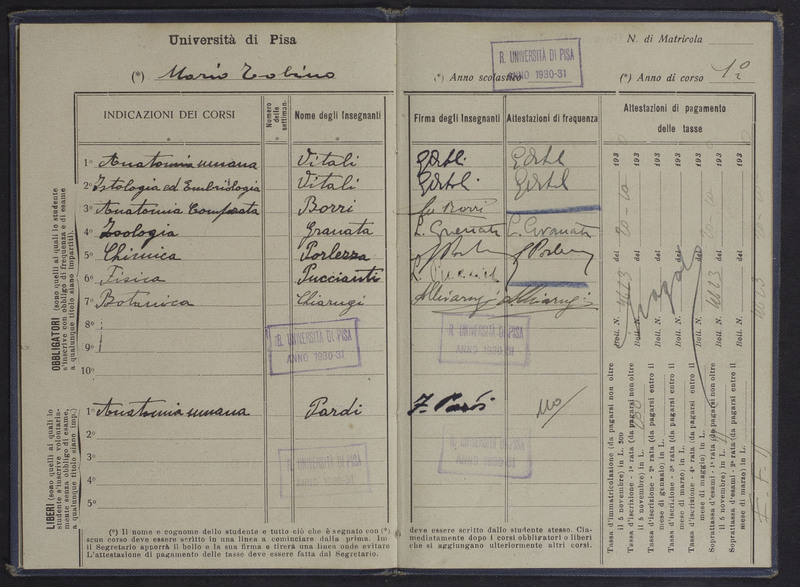 Università di Pisa
(*) Mario Tobino
INDICAZIONI DEI CORSI
Numero delle settiman.
Nome degli Insegnanti
OBBLIGATORI (sono quelli ai quali lo studente s'inscrive con obbligo di frequenza e di esame a qualunque titolo siano impartiti).
1° Anatomia umana Vitali
2° Istologia ed Embriologia Vitali
3° Anatomia Comparata Borri
4° Zoologia Granata
5° Chimica Porlezza
6° Fisica Puccianti
7° Botanica Chiarugi
8°
9°
10°
R. UNIVERSITÀ DI PISA
ANNO 1930-31
LIBERI (sono quelli ai quali lo studente s'inscrive volontariamente senza obbligo di esame, a qualunque titolo siano imp.)
1° Anatomia umana Pardi
2°
3°
4°
5°
R. UNIVERSITÀ DI PISA
ANNO 1930-31
(*) Il nome e cognome dello studente e tutto ciò che è segnato con (*)
scun corso deve essere scritto in una linea a cominciare dalla prima. Im
il Segretario apporrà il bollo e la sua firma e tirerà una linea onde evitare
L'attestazione di pagamento delle tasse deve essere fatta dal Segretario.
N. di Matricola
R. UNIVERSITÀ DI PISA
ANNO 1930-31
(*) Anno scolastico
(*) Anno di corso 1°
Firma degli Insegnanti
Attestazioni di frequenza
Attestazioni di pagamento
delle tasse
Borri
L. Granata L. Granata
Chiarugi Chiarugi
R. UNIVERSITÀ DI PISA
ANNO 1930-31
Pardi no
R. UNIVERSITÀ DI PISA
ANNO 1930-31
Tassa d'immatricolazione (da pagarsi non oltre il 5 novembre) in L. 300 Boll. N. 4623 del 193
Tassa d'iscrizione - 1ª rata (da pagarsi non oltre il 5 novembre) in L. Boll. N. del 193
Tassa d'iscrizione - 2ª rata (da pagarsi entro il mese di gennaio) in L. Boll. N. del 193
Tassa d'iscrizione - 3ª rata (da pagarsi entro il mese di marzo) in L. Boll. N. del 193
Tassa d'iscrizione - 4ª rata (da pagarsi entro il mese di maggio) in L. Boll. N. del 193
Soprattassa d'esami - 1ª rata (da pagarsi non oltre il 5 novembre) in L. Boll. N. 4623 del 193
Soprattassa d'esami - 2ª rata (da pagarsi entro il mese di marzo) in L. Boll. N. del 193
deve essere scritto dallo studente stesso. Cia-
mediatamente dopo i corsi obbligatori o liberi
che si aggiungano ulteriormente altri corsi.